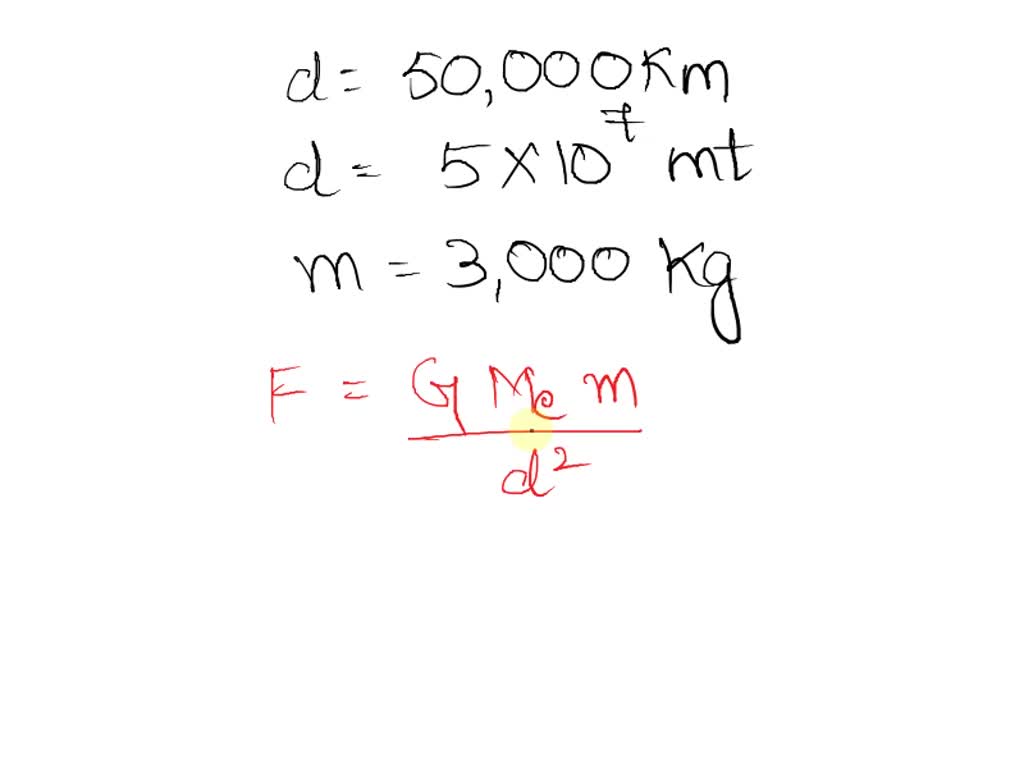 d = 50,000 Km
d = 5 × 10⁷ mt
m = 3,000 Kg
F = G Me m
d²